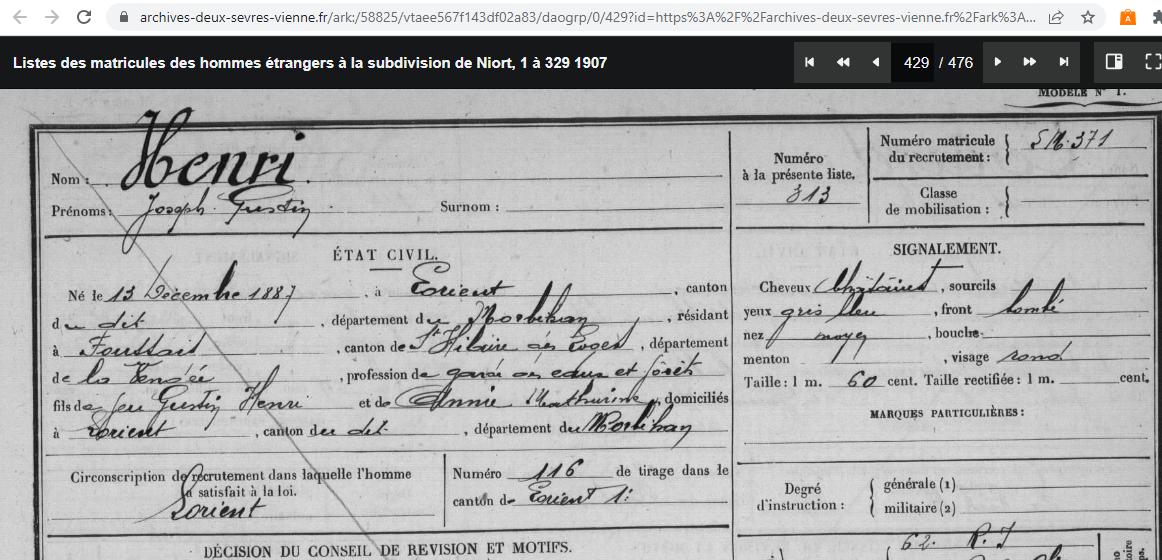 archives-deux-sevres-vienne.fr/ark:/58825/vtaee567f143df02a83/daogrp/0/429?id=https%3A%2F%2Farchives-deux-sevres-vienne.fr%2Fark%3A...
Listes des matricules des hommes étrangers à la subdivision de Niort, 1 à 329 1907
429 / 476
MODÈLE N° 1.
Nom : Henri
Prénoms : Joseph Gustin Surnom :
Numéro à la présente liste. 313
Numéro matricule du recrutement : 371
Classe de mobilisation :
ÉTAT CIVIL.
Né le 13 Décembre 1887, à Lorient, canton
du dit, département du Morbihan, résidant
à Foussais, canton de St Hilaire des Loges, département
de la Vendée, profession de garde des eaux et forêts
fils de feu Gustin Henri et de Annic Mathurine, domiciliés
à Lorient, canton du dit, département du Morbihan
SIGNALEMENT.
Cheveux Châtains, sourcils
yeux gris bleu, front bombé
nez moyen, bouche
menton, visage rond
Taille : 1 m. 60 cent. Taille rectifiée : 1 m. cent.
MARQUES PARTICULIÈRES :
Circonscription de recrutement dans laquelle l'homme
a satisfait à la loi.
Lorient
Numéro 116 de tirage dans le
canton de Lorient 1:
Degré d'instruction : générale (1)
militaire (2)
DÉCISION DU CONSEIL DE REVISION ET MOTIFS.